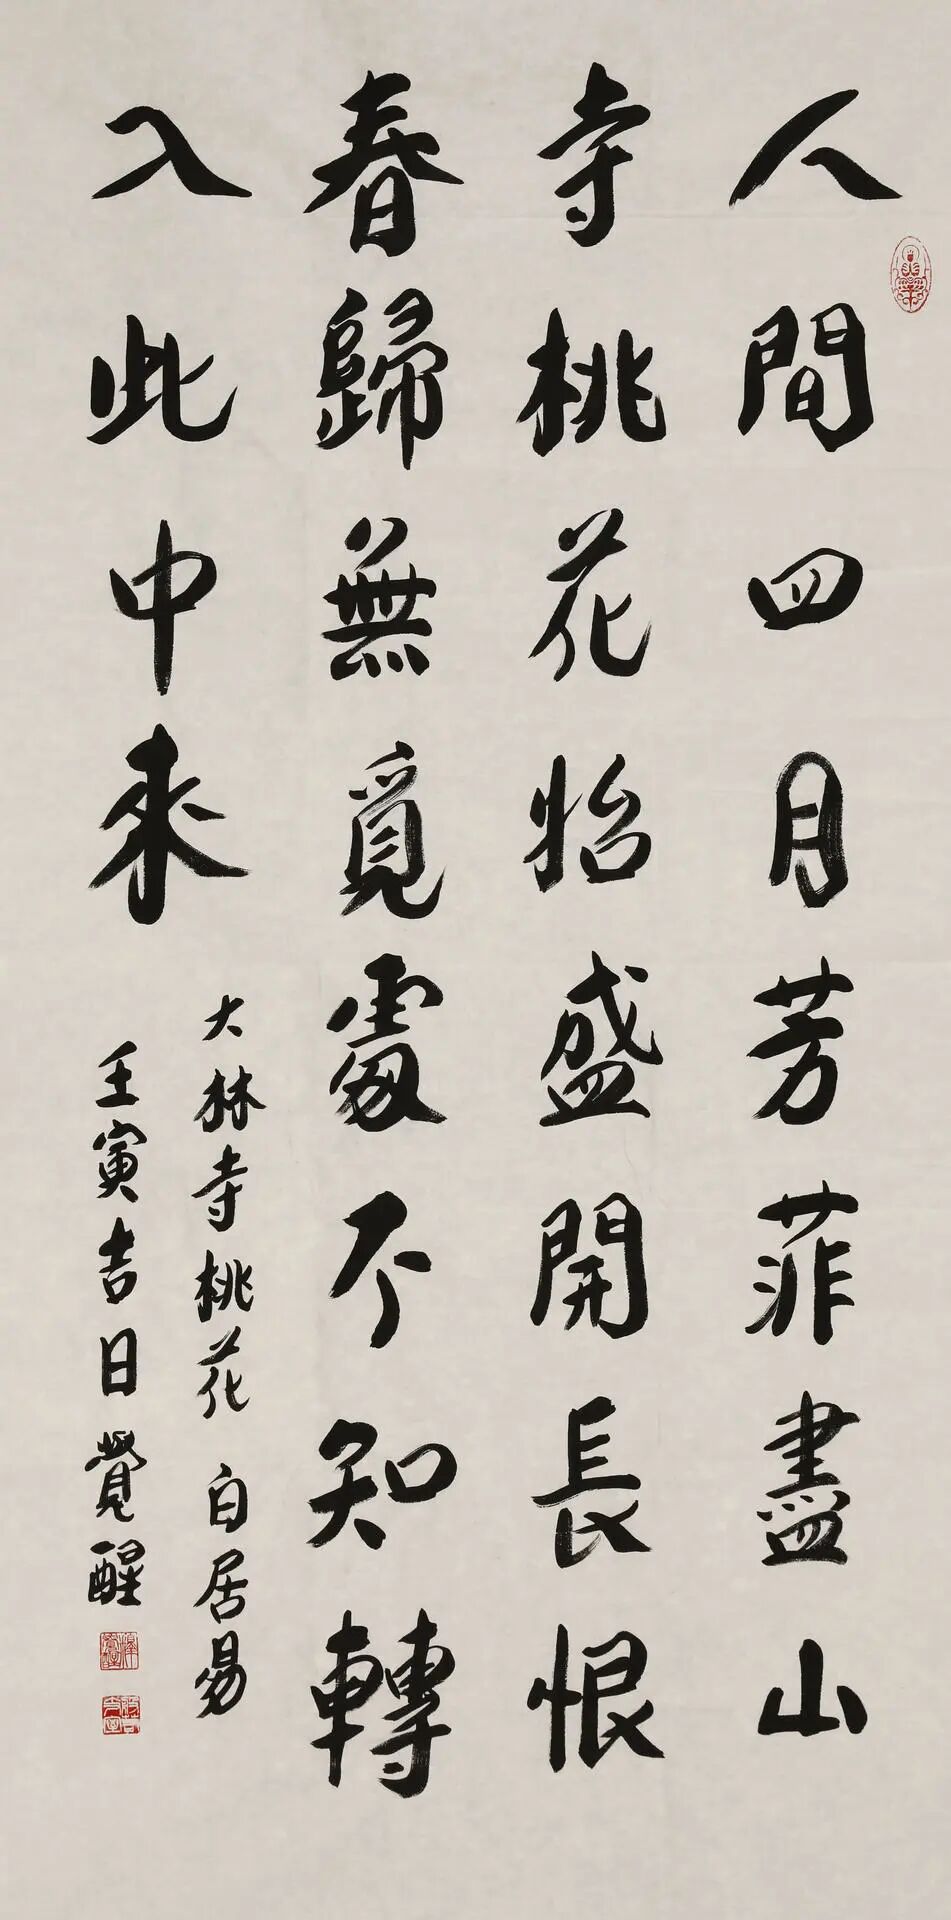 人間四月芳菲盡山
寺桃花始盛開長恨
春歸無覓處不知轉
入此中來
大林寺桃花 白居易
壬寅吉日覺醒